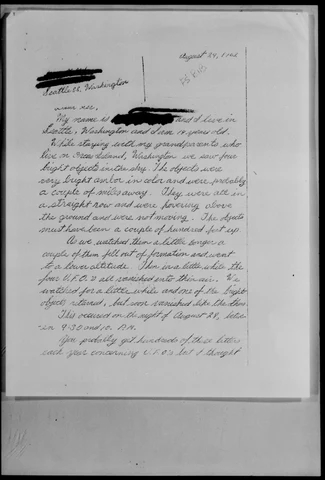 August 29, 1966
Seattle 88, Washington
Dear Sir,
My name is and I live in
Seattle, Washington and I am 14 years old.
While staying with my grandparents who
live on Island, Washington we saw four
bright objects in the sky. The objects were
very bright amber in color and were probably
a couple of miles away. They were all in
a straight row and were hovering above
the ground and were not moving. The objects
must have been a couple of hundred feet up.
As we watched them a little longer a
couple of them fell out of formation and went
to a lower altitude. Then in a little while the
four U.F.O.'s all vanished into thin air. We
watched for a little while and one of the bright
objects returned, but soon vanished like the others.
This occured on the night of August 28, betw-
een 9:30 and 10 P.M.
You probably get hundreds of these letters
each year concerning U.F.O's but I thought